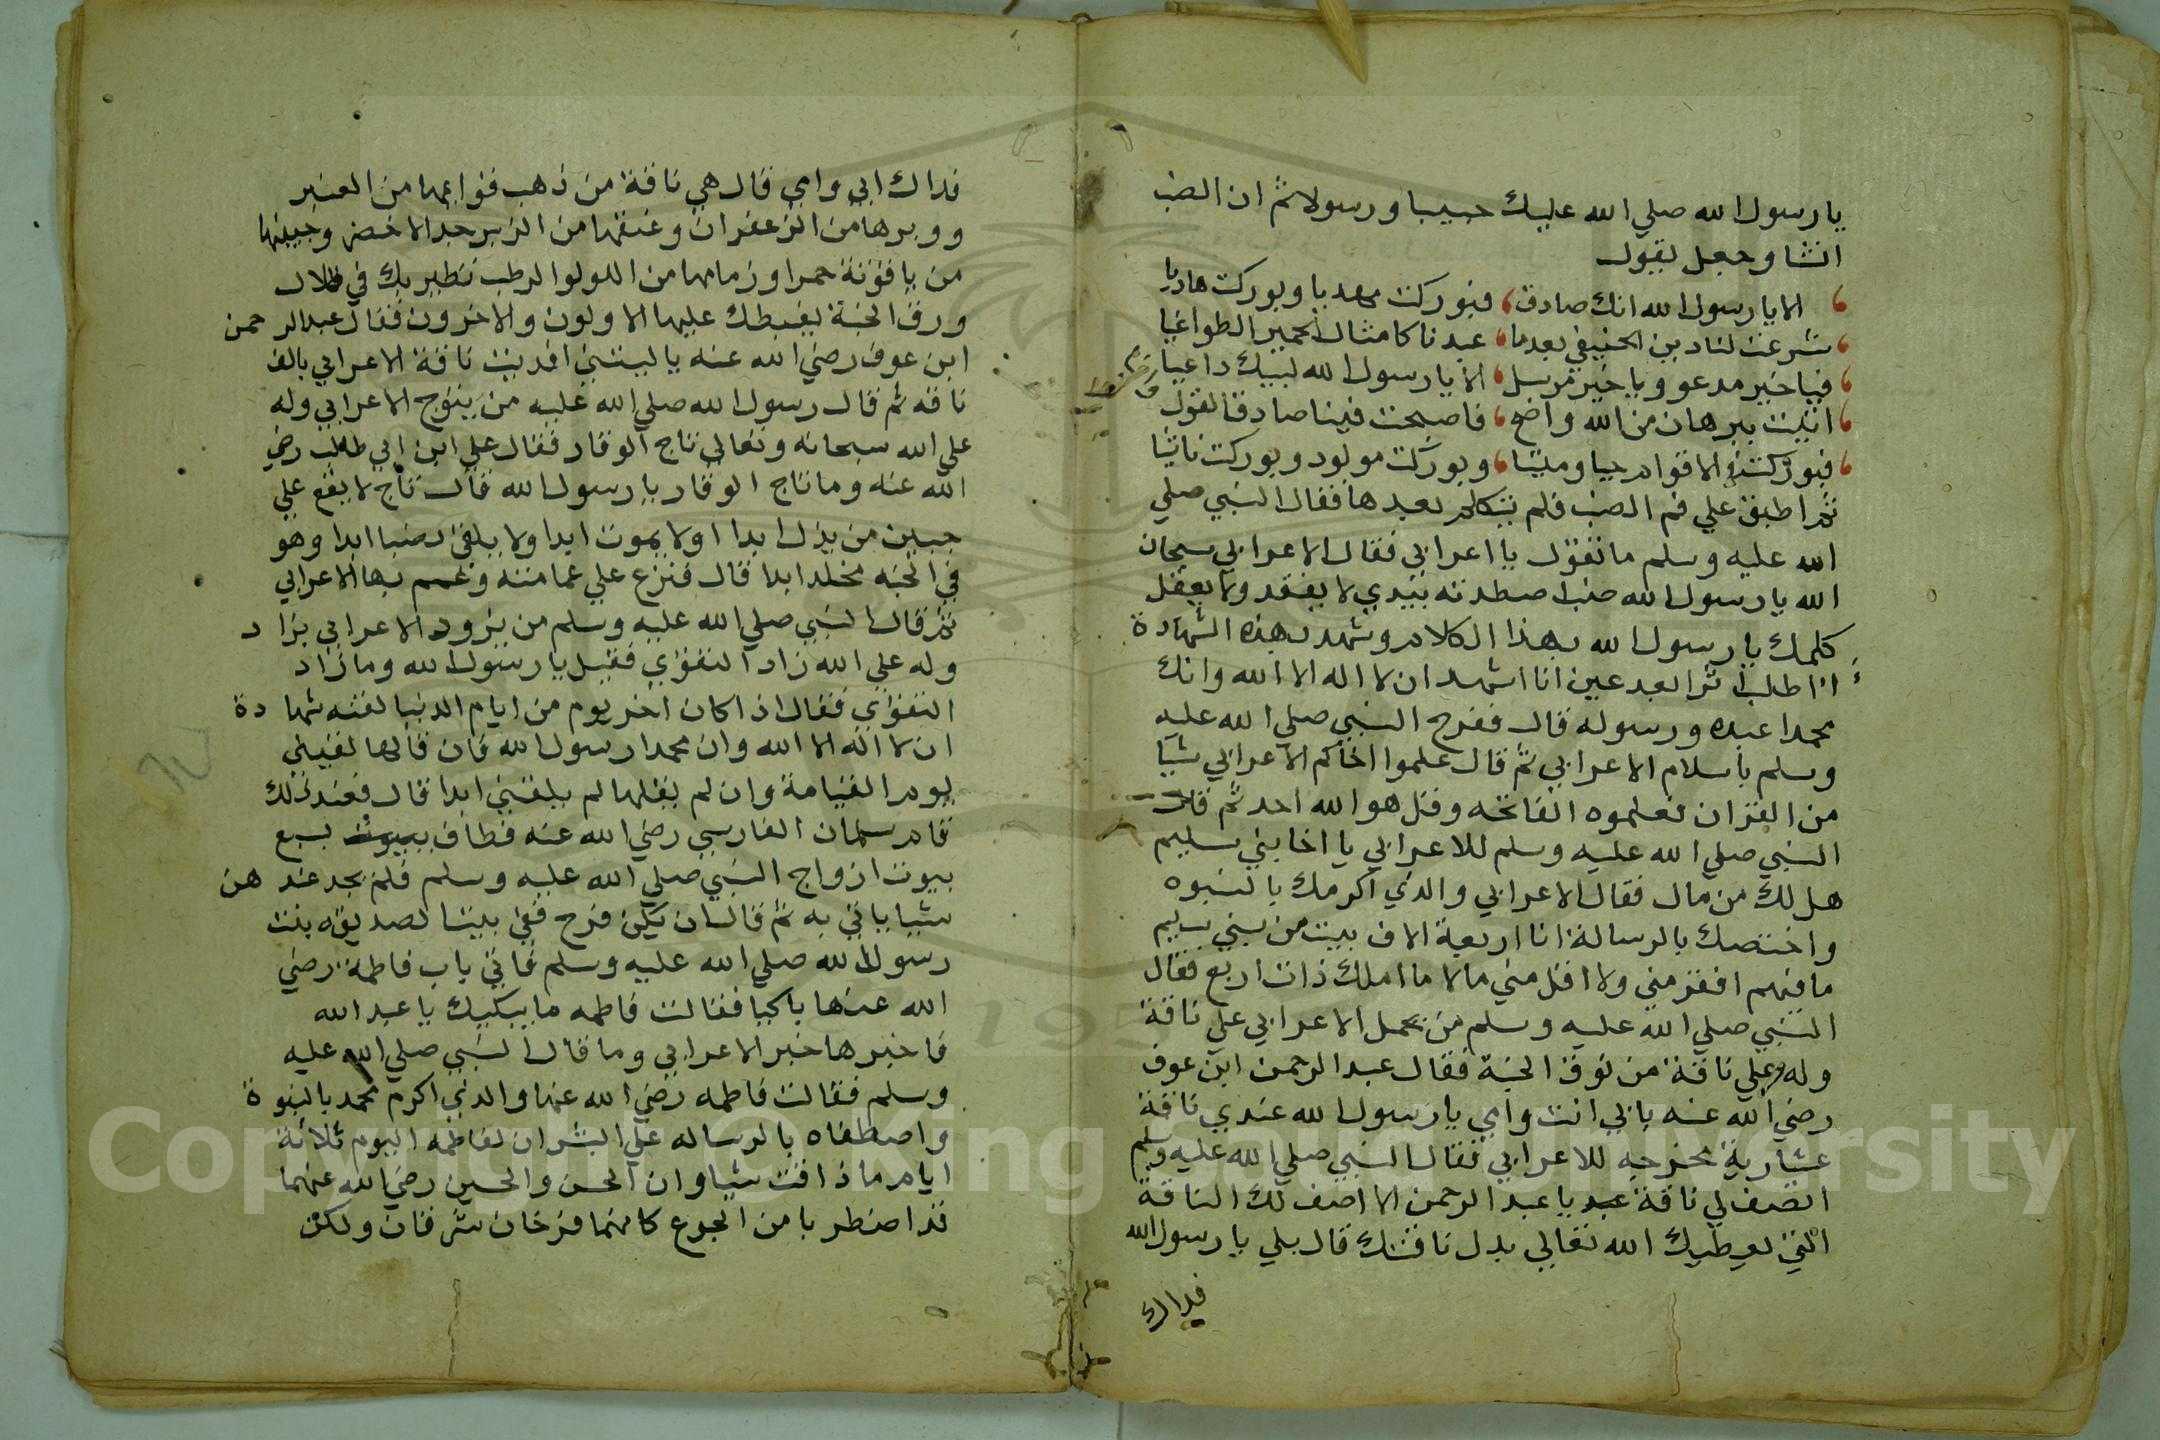 يارسول الله صلي الله عليك حبيبا ورسولا ثم ان الضب
انشا وجعل يقول
الا يا رسول الله انك صادق فبوركت مهديا وبوركت هاديا
شرعت لنا دين الحنيفي بعدما عبدنا كامثال الحمير الطواغيا
فيا خير مدعو ويا خير مرسل الا يا رسول الله لبيك داعيا
اتيت ببرهان من الله واضح فاصبحت فينا صادق القول
فبوركت في الاقوام حيا وميتا وبوركت مولود وبوركت ناشا
ثم اطبق علي فم الضب فلم يتكلم بعدها فقال النبي صلي
الله عليه وسلم ما تقول يا اعرابي فقال الاعرابي سبحان
الله يا رسول الله ضب اصطدته بيدي لا يفقه ولا يعقل
كلمك يا رسول الله بهذا الكلام وشهد بهذه الشهادة
انا اطلب اثرا بعد عين انا اشهد ان لا اله الا الله وانك
محمدا عبده ورسوله قال ففرح النبي صلي الله عليه
وسلم باسلام الاعرابي ثم قال علموا اخاكم الاعرابي شيا
من القران فعلموه الفاتحه وقل هو الله احد ثم قال
النبي صلي الله عليه وسلم للاعرابي يا اخا بني سليم
هل لك من مال فقال الاعرابي والذي اكرمك بالنبوه
واختصك بالرسالة انا اربعة الاف بيت من بني سليم
ما فيهم افقر مني ولا اقل مني مالا ما املك ذات اربع فقال
النبي صلي الله عليه وسلم من يحمل الاعرابي علي ناقة
وله علي ناقة من نوق الجنة فقال عبد الرحمن ابن عوف
رضي الله عنه بابي انت وامي يا رسول الله عندي ناقة
عشارية مخرجه للاعرابي فقال النبي صلي الله عليه وسلم
اتصف لي ناقة عبد يا عبد الرحمن الا اصف لك الناقة
التي يعطيك الله تعالي بدل ناقتك قال بلي يا رسول الله
فداك
فداك ابي وامي قال هي ناقة من ذهب قوايمها من العنبر
ووبرها من الزعفران وعنقها من الزبرجد الاخضر وجبينها
من ياقوتة حمرا وزمامها من اللولوا الرطب تطير بك في ظلال
ورق الجنة يغبطك عليها الاولون والاخرون فقال عبد الرحمن
ابن عوف رضي الله عنه يا ليتني افديت ناقة الاعرابي بالف
ناقه ثم قال رسول الله صلي الله عليه من يتوج الاعرابي وله
علي الله سبحانه وتعالي تاج الوقار فقال علي ابن ابي طالب رضي
الله عنه وما تاج الوقار يا رسول الله قال تاج لا يقع علي
جبين من يذل ابدا اولا يموت ابدا ولا يلقي نصبا ابدا وهو
في الجنه مخلد ابدا قال فنزع علي عمامته وعمم بها الاعرابي
ثم قال النبي صلي الله عليه وسلم من يزود الاعرابي بزاد
وله علي الله زاد التقوي فقيل يا رسول الله وما زاد
التقوي فقال اذا كان اخر يوم من ايام الدنيا لقنه شهادة
ان لا اله الا الله وان محمدا رسول الله فان قالها لقيني
يوم القيامة وان لم يقلها لم يلقني ابدا قال فعند ذلك
قام سلمان الفارسي رضي الله عنه فطاف ببيوت بسبع
بيوت ازواج النبي صلي الله عليه وسلم فلم يجد عندهن
شيا ياتي به ثم قال ان يكن فرح ففي بيت الصديقه بنت
رسول الله صلي الله عليه وسلم فاتي باب فاطمة رضي
الله عنها باكيا فقالت فاطمه ما يبكيك يا عبد الله
فاخبرها خبر الاعرابي وما قال النبي صلي الله عليه
وسلم فقالت فاطمه رضي الله عنها والذي اكرم محمد بالنبوة
واصطفاه بالرساله علي البشر ان لفاطمه اليوم ثلاثة
ايام ما ذاقت شيا وان الحسن والحسين رضي الله عنهما
قد اضطربا من الجوع كانهما فرخان سرقان ولكن